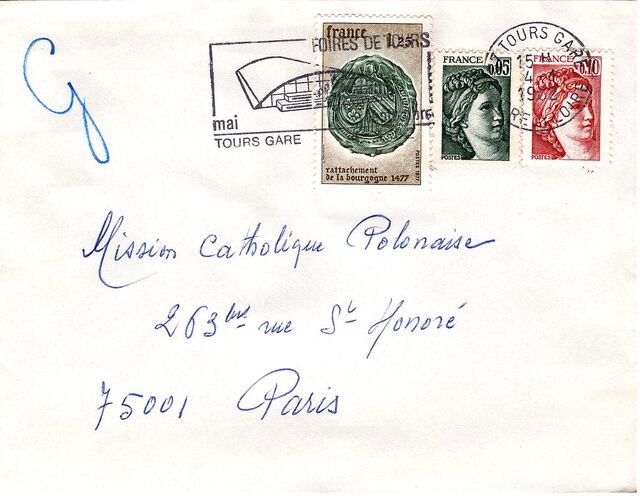 FOIRES DE TOURS
mai
TOURS GARE
france 1,25
rattachement
de la bourgogne 1477
POSTES 1977
FRANCE 0,05
POSTES
FRANCE 0,10
POSTES
TOURS GARE
15 H
4
19
LOIRE
Mission Catholique Polonaise
263 bis rue St Honoré
75001 Paris